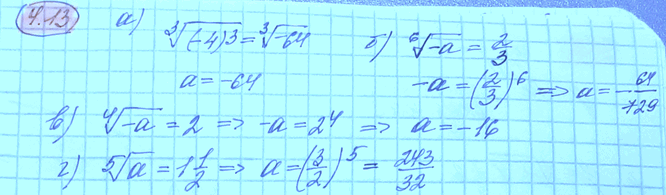 4.13 а) ∛(-4)³ = ∛-64 б) ⁶√-a = 2/3
a = -64 -a = (2/3)⁶ => a = -64/729
в) ⁴√-a = 2 => -a = 2⁴ => a = -16
г) ⁵√a = 1 1/2 => a = (3/2)⁵ = 243/32